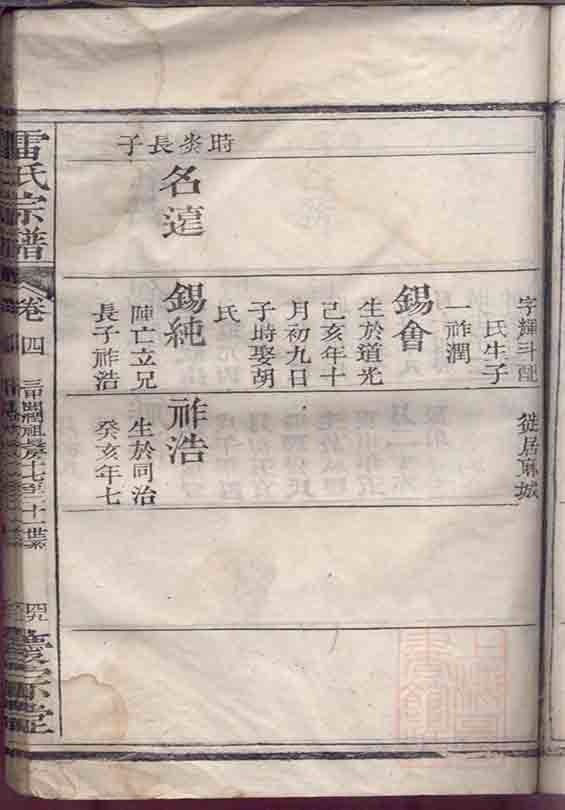 時炎長子
名遠
字輝斗配
氏生子
一祚潤
錫會
生於道光
己亥年十
月初九日
子時娶胡
氏
錫純
陣亡立兄
長子祚浩
徙居麻城
祚浩
生於同治
癸亥年七
雷氏宗譜
卷四